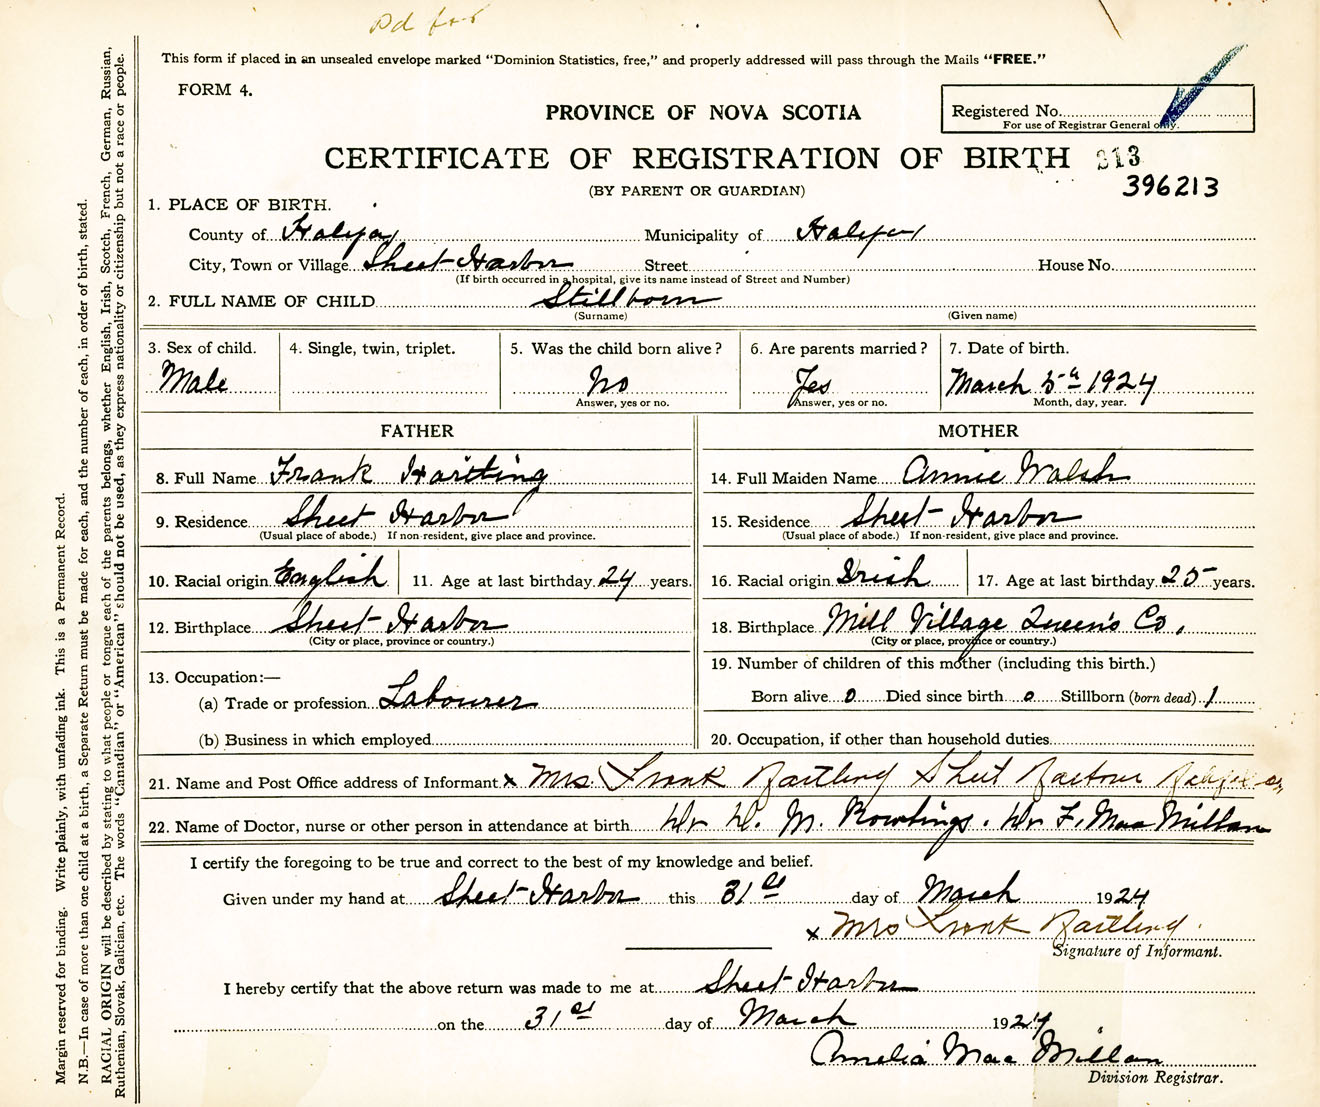 Pd for
This form if placed in an unsealed envelope marked "Dominion Statistics, free," and properly addressed will pass through the Mails "FREE."
FORM 4.
PROVINCE OF NOVA SCOTIA
Registered No.
For use of Registrar General only.
CERTIFICATE OF REGISTRATION OF BIRTH 213
396213
(BY PARENT OR GUARDIAN)
1. PLACE OF BIRTH.
County of Halifax Municipality of Halifax
City, Town or Village Sheet Harbor Street House No.
(If birth occurred in a hospital, give its name instead of Street and Number)
2. FULL NAME OF CHILD Stillborn
(Surname) (Given name)
3. Sex of child. 4. Single, twin, triplet. 5. Was the child born alive? 6. Are parents married? 7. Date of birth.
Male No Yes March 5th 1924
Answer, yes or no. Answer, yes or no. Month, day, year.
FATHER MOTHER
8. Full Name Frank 14. Full Maiden Name Annie Walsh
9. Residence Sheet Harbor 15. Residence Sheet Harbor
(Usual place of abode.) If non-resident, give place and province. (Usual place of abode.) If non-resident, give place and province.
10. Racial origin English 11. Age at last birthday 24 years. 16. Racial origin Irish 17. Age at last birthday 25 years.
12. Birthplace Sheet Harbor 18. Birthplace Mill Village Queen's Co.
(City or place, province or country.) (City or place, province or country.)
13. Occupation:— 19. Number of children of this mother (including this birth.)
(a) Trade or profession Labourer Born alive 0 Died since birth 0 Stillborn (born dead) 1
(b) Business in which employed 20. Occupation, if other than household duties
21. Name and Post Office address of Informant x Mrs. Frank Sheet Harbour Halifax Co,
22. Name of Doctor, nurse or other person in attendance at birth Dr D. M. Rowlings. Dr F. MacMillan
I certify the foregoing to be true and correct to the best of my knowledge and belief.
Given under my hand at Sheet Harbor this 31st day of March 1924
x Mrs Frank
Signature of Informant.
I hereby certify that the above return was made to me at Sheet Harbor
on the 31st day of March 1924
Amelia MacMillan
Division Registrar.
Margin reserved for binding. Write plainly, with unfading ink. This is a Permanent Record.
N.B.—In case of more than one child at a birth, a Separate Return must be made for each, and the number of each, in order of birth, stated.
RACIAL ORIGIN will be described by stating to what people or tongue each of the parents belongs, whether English, Irish, Scotch, French, German, Russian,
Ruthenian, Slovak, Galician, etc. The words "Canadian" or "American" should not be used, as they express nationality or citizenship but not a race or people.